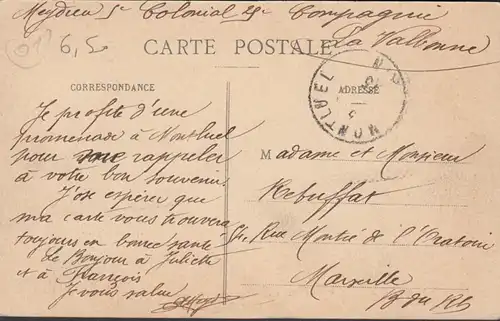 Meydieu 5e Colonial 25e Compagnie
6,50
La Valbonne
CARTE POSTALE
CORRESPONDANCE
ADRESSE
MONTLUEL
Je profite d'une
promenade à Montluel
pour me rappeler
à votre bon souvenir.
J'ose espérer que
ma carte vous trouvera
toujours en bonne santé
Le Bonjour à Juliette
et à François
Je vous salue
Madame et Monsieur
Rebuffat
Rue Montée de l'Oratoire
Marseille
B du Rh